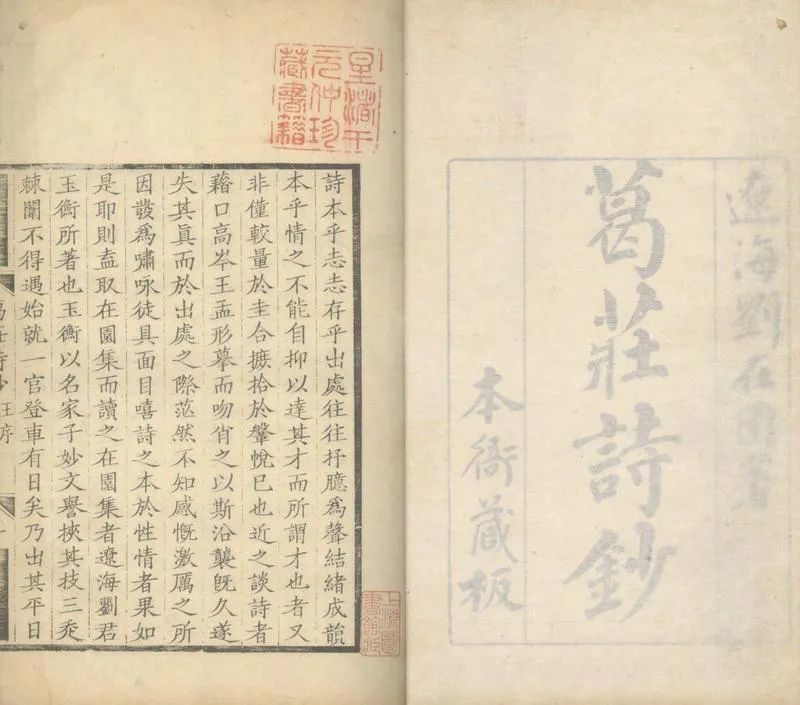 遼海劉在園著
葛莊詩鈔
本衙藏板
星渚干
元仲珍
藏書籍
詩本乎志志存乎出處往往抒臆為聲結緒成韻
本乎情之不能自抑以達其才而所謂才也者又
非僅較量於圭合摭拾於鞶帨已也近之談詩者
藉口高岑王孟形摹而吻肖之以斯沿襲旣久遂
失其眞而於出處之際茫然不知感慨激厲之所
因發為嘯咏徒具面目嘻詩之本於性情者果如
是耶則盍取在園集而讀之在園集者遼海劉君
玉衡所著也玉衡以名家子妙文譽挾其技三奔
棘闈不得遇始就一官登車有日矣乃出其平日
葛莊詩鈔
王序
上海圖
書館藏